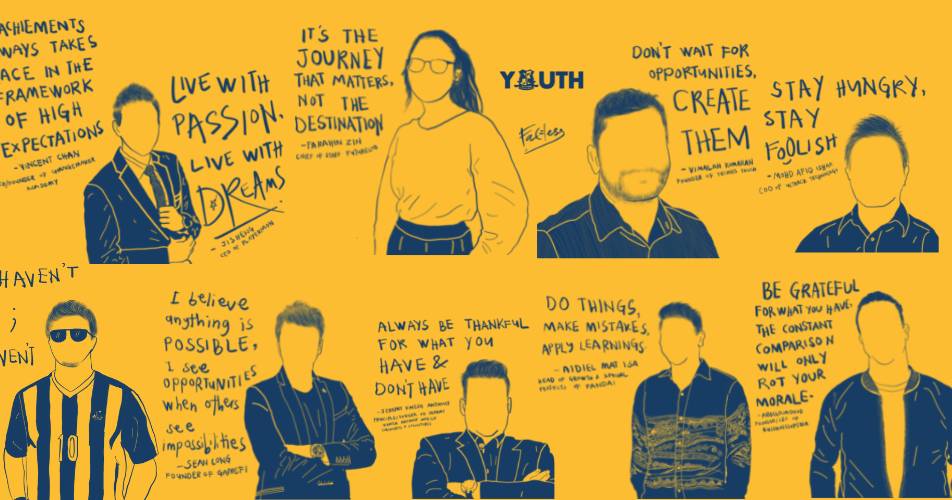 ACHIEMENTS
WAYS TAKES
ACE IN THE
FRAMEWORK
OF HIGH
EXPECTATIONS
- VINCENT CHAN
ACADEMY
LIVE WITH
PASSION,
LIVE WITH
DREAMS
- JISHENG
CEO OF
IT'S THE
JOURNEY
THAT MATTERS,
NOT THE
DESTINATION
- FARAHIN ZIN
CHIEF OF STAFF
YOUTH
Faceless
DON'T WAIT FOR
OPPORTUNITIES,
CREATE
THEM
- VIMALAN KUMARAN
FOUNDER OF
STAY HUNGRY,
STAY
FOOLISH
- MOHD AFIQ
COO OF
HAVEN'T
;
VEN'T
10
I believe
anything is
POSSIBLE,
I see
OPPORTUNITIES
when others
see
impossibilities
- SEAN LONG
FOUNDER OF GAMEFI
ALWAYS BE THANKFUL
FOR WHAT YOU
HAVE &
DON'T HAVE
DO THINGS,
MAKE MISTAKES,
APPLY LEARNINGS.
- AIDIEL MAT ISA
HEAD OF GROWTH & SPECIAL
PROJECTS OF PANDAI
BE GRATEFUL
FOR WHAT YOU HAVE.
THE CONSTANT
COMPARISON
WILL ONLY
ROT YOUR
MORALE.